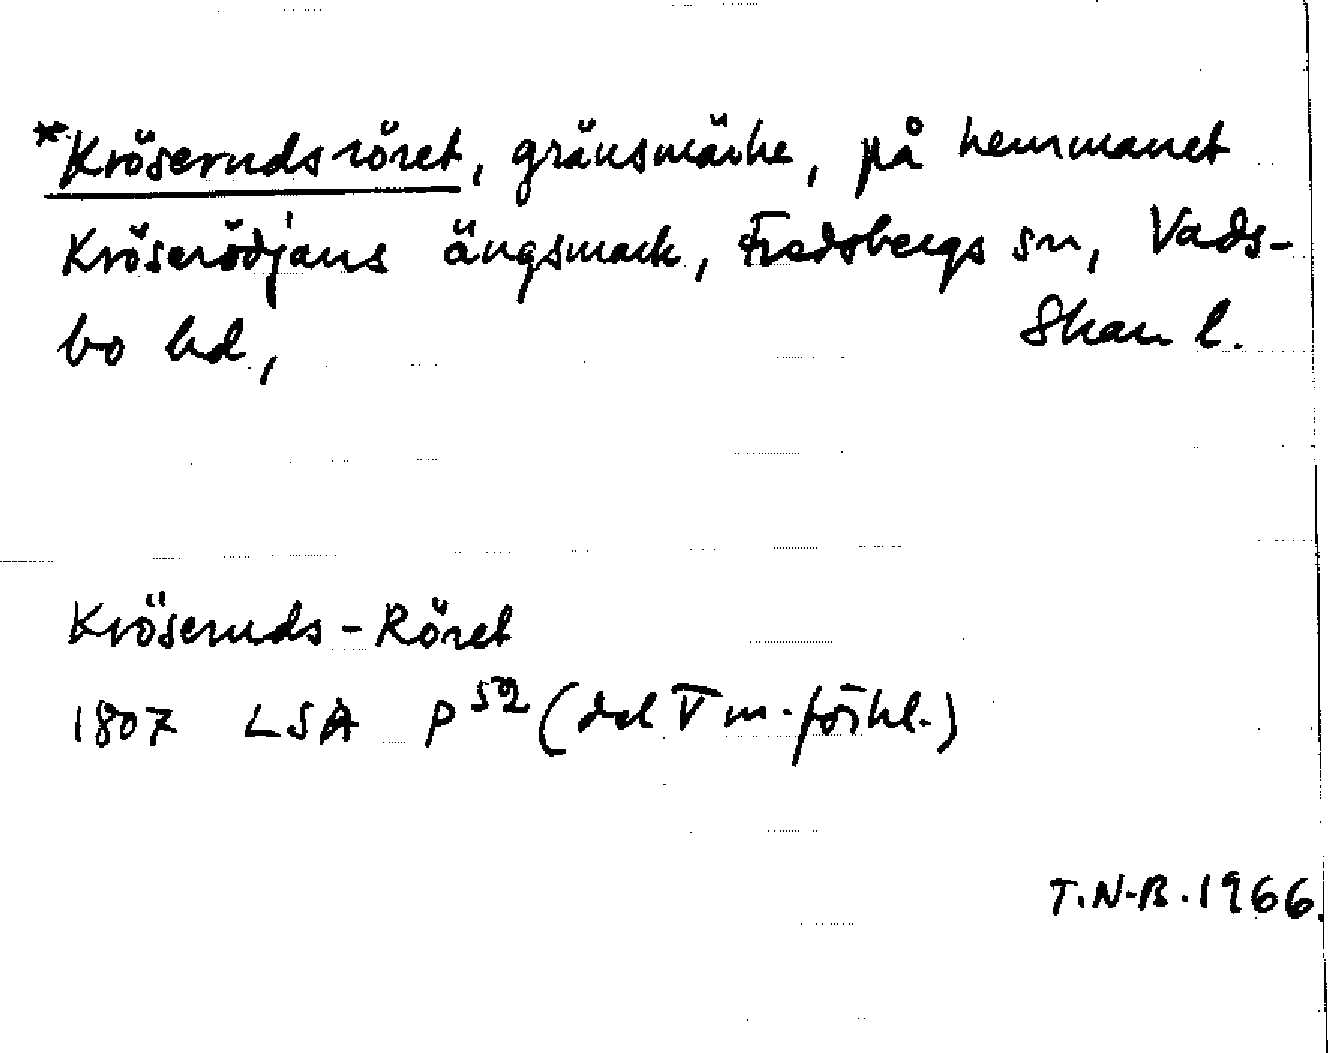 *Krösernds röret, gränsmärke, på hemmanet
Kröserödjans ängsmark, Fredsbergs sn, Vads-
bo hd, Skar. l.
Krösernds-Röret
1807 LSA P 52 (del V m. förkl.)
T.N-B. 1966.